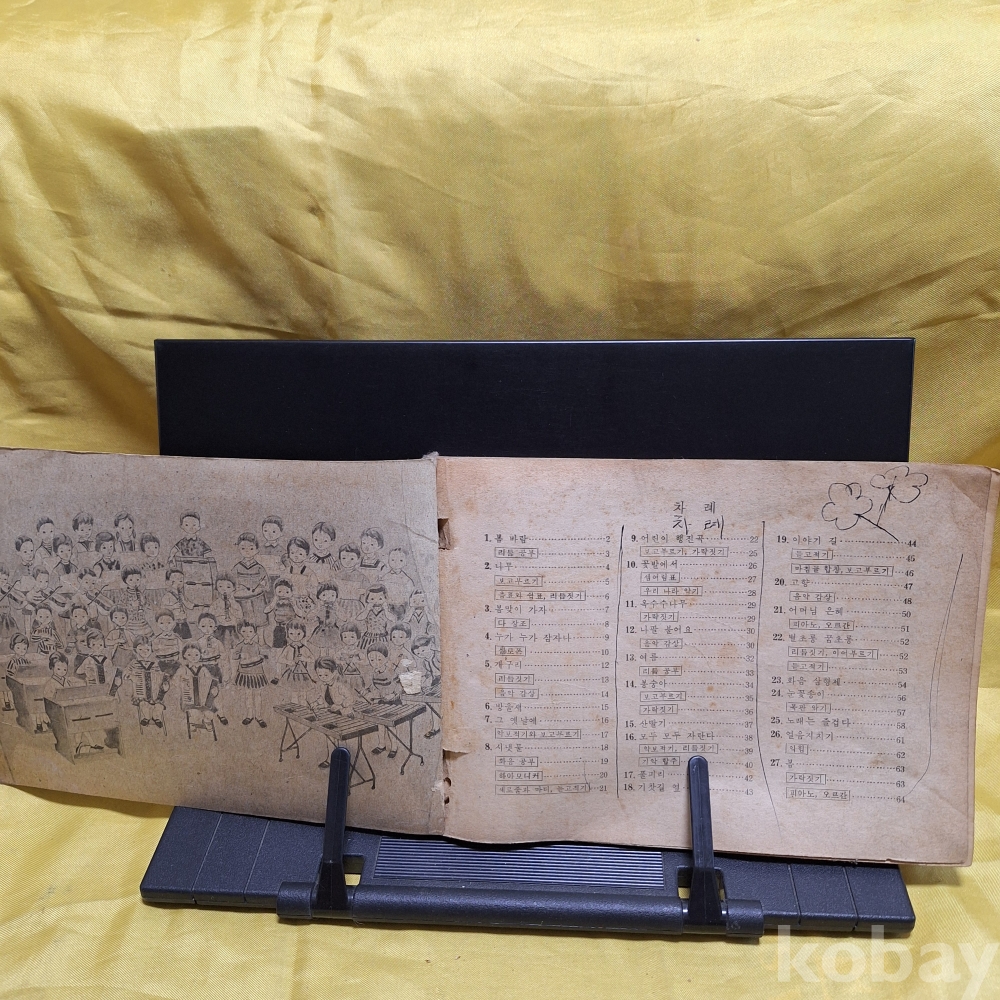 차 례
차 례
1. 봄 바람 2
리듬 공부 3
2. 나무 4
보고부르기 5
음표와 쉼표, 리듬짓기 6
3. 봄맞이 가자 7
다 장조 8
4. 누가 누가 잠자나 9
멜로폰 10
5. 개구리 12
리듬짓기 13
음악 감상 14
6. 방울새 15
7. 그 옛날에 16
악보적기와 보고부르기 17
8. 시냇물 18
화음 공부 19
하아모니커 20
세로줄과 마디, 듣고적기 21
9. 어린이 행진곡 22
보고부르기, 가락짓기 25
10. 꽃밭에서 26
셈여림표 27
우리 나라 악기 28
11. 옥수수나무 29
가락짓기 29
12. 나팔 불어요 30
음악 감상 30
13. 여름 32
리듬 공부 33
14. 봉숭아 34
보고부르기 35
가락짓기 36
15. 산딸기 37
16. 모두 모두 자란다 38
악보적기, 리듬짓기 39
기악 합주 40
17. 42
18. 기찻길 옆 43
19. 이야기 길 44
듣고적기 45
마침꼴 합창, 보고부르기 46
20. 고향 47
음악 감상 48
21. 어머님 은혜 50
피아노, 오르간 51
22. 별 초롱 꽃 초롱 52
리듬짓기, 이어부르기 52
듣고적기 53
23. 화음 삼형제 54
24. 눈꽃송이 56
목관 악기 57
25. 노래는 즐겁다 58
26. 얼음지치기 61
62
27. 봄 63
가락짓기 63
피아노, 오르간 64
kobay